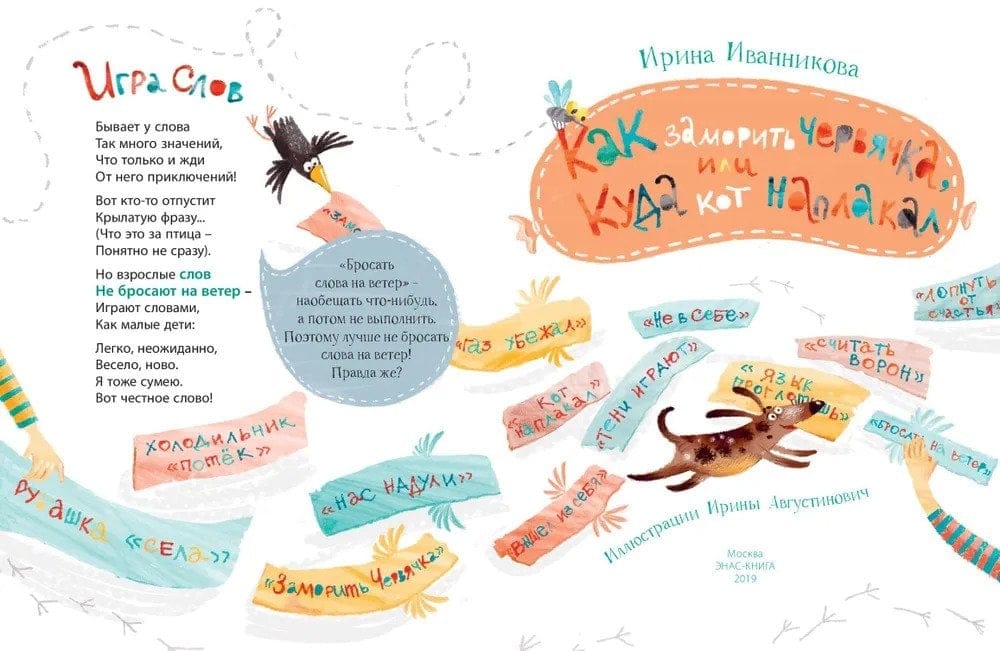 Игра Слов
Бывает у слова
Так много значений,
Что только и жди
От него приключений!
Вот кто-то отпустит
Крылатую фразу...
(Что это за птица –
Понятно не сразу).
Но взрослые слов
Не бросают на ветер –
Играют словами,
Как малые дети:
Легко, неожиданно,
Весело, ново.
Я тоже сумею.
Вот честное слово!
«Бросать
слова на ветер» -
наобещать что-нибудь,
а потом не выполнить.
Поэтому лучше не бросать
слова на ветер!
Правда же?
ХОЛОДИЛЬНИК
«ПОТЁК»
РУБАШКА «СЕЛА»
«НАС НАДУЛИ»
«ЗАМОРИТЬ ЧЕРВЯЧКА»
Ирина Иванникова
Как заморить червячка,
или
Куда кот наплакал
«ГАЗ УБЕЖАЛ»
«НЕ В СЕБЕ»
«ЛОПНУТЬ
ОТ
СЧАСТЬЯ»
«СЧИТАТЬ
ВОРОН»
КОТ
«НАПЛАКАЛ»
«ТЕНИ ИГРАЮТ»
«ЯЗЫК
ПРОГЛОТИШЬ»
«БРОСАТЬ НА ВЕТЕР»
«ВЫШЕЛ ИЗ СЕБЯ»
Иллюстрации Ирины Августинович
Москва
ЭНАС-КНИГА
2019